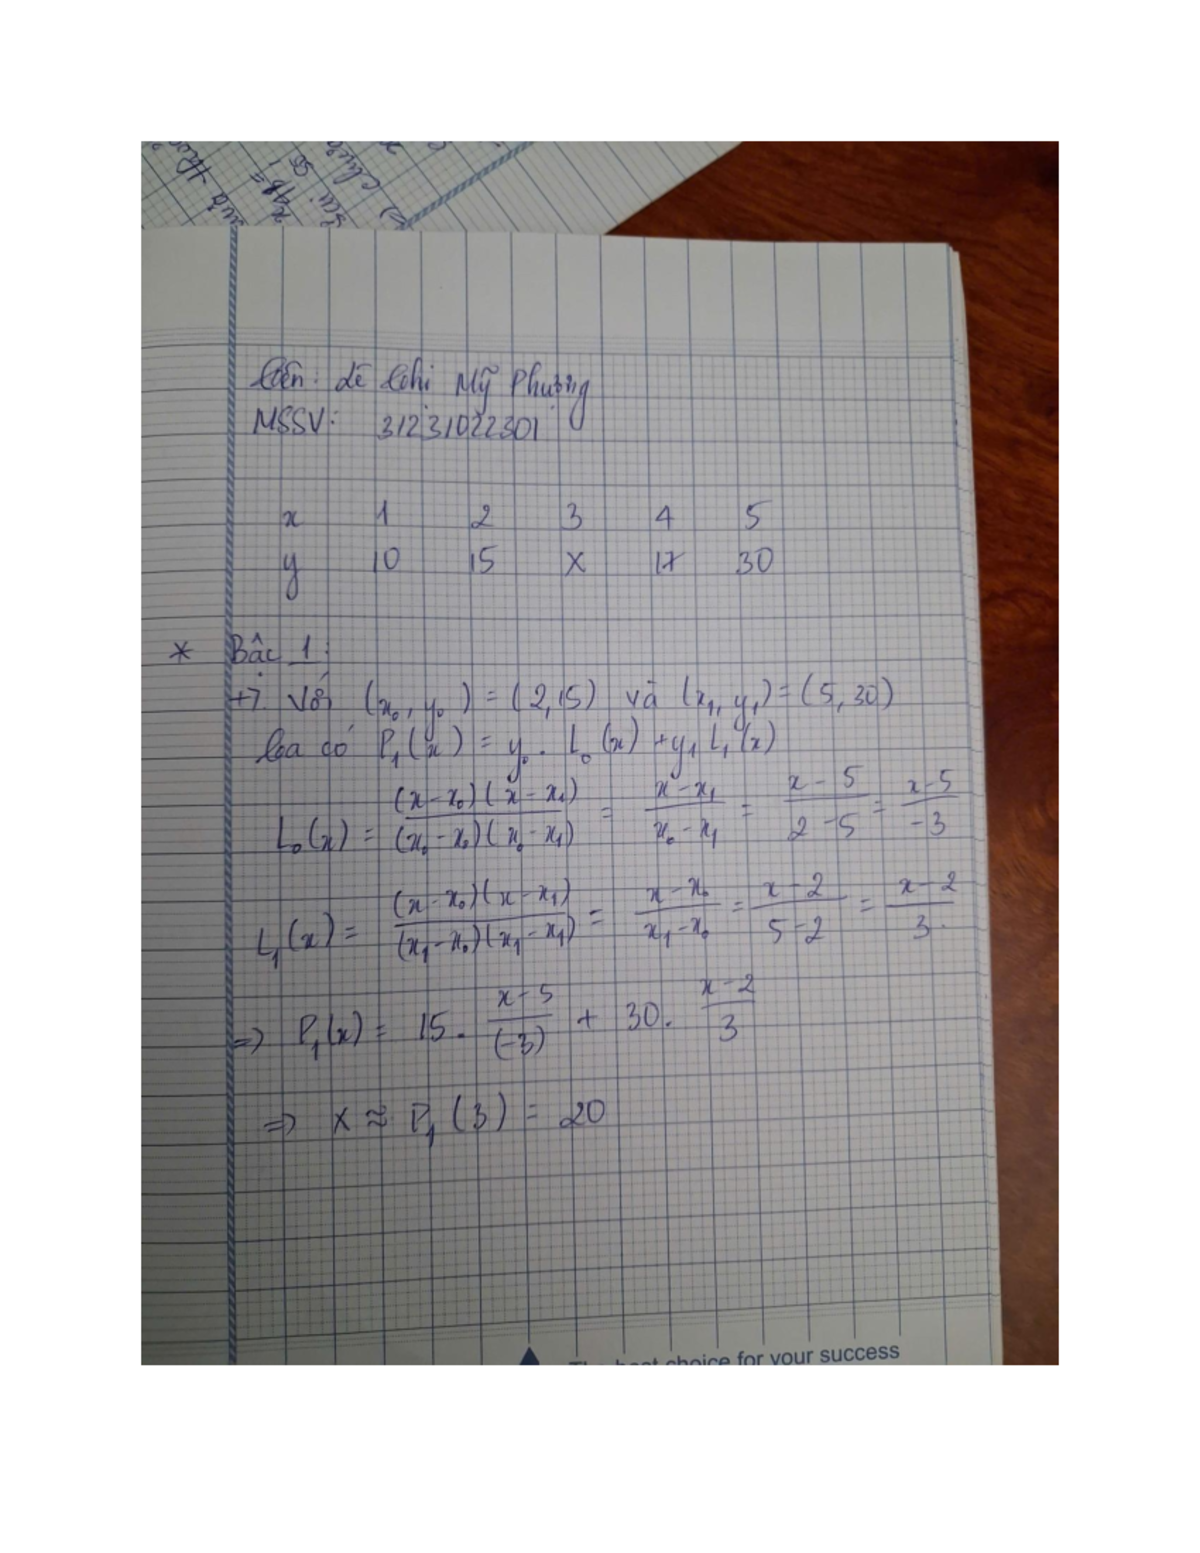 Tên: Lê Thị Mỹ Phương
MSSV: 31231022301
x 1 2 3 4 5
y 10 15 X 17 30
* Bậc 1:
+) Với (x₀, y₀) = (2,15) và (x₁, y₁) = (5,30)
Ta có P₁(x) = y₀ . L₀(x) + y₁ L₁(x)
L₀(x) = (x-x₀)(x-x₁) / (x₀-x₀)(x₀-x₁) = x-x₁ / x₀-x₁ = x-5 / 2-5 = x-5 / -3
L₁(x) = (x-x₀)(x-x₁) / (x₁-x₀)(x₁-x₁) = x-x₀ / x₁-x₀ = x-2 / 5-2 = x-2 / 3
=> P₁(x) = 15. x-5 / (-3) + 30. x-2 / 3
=> X ≈ P₁(3) = 20
The best choice for your success